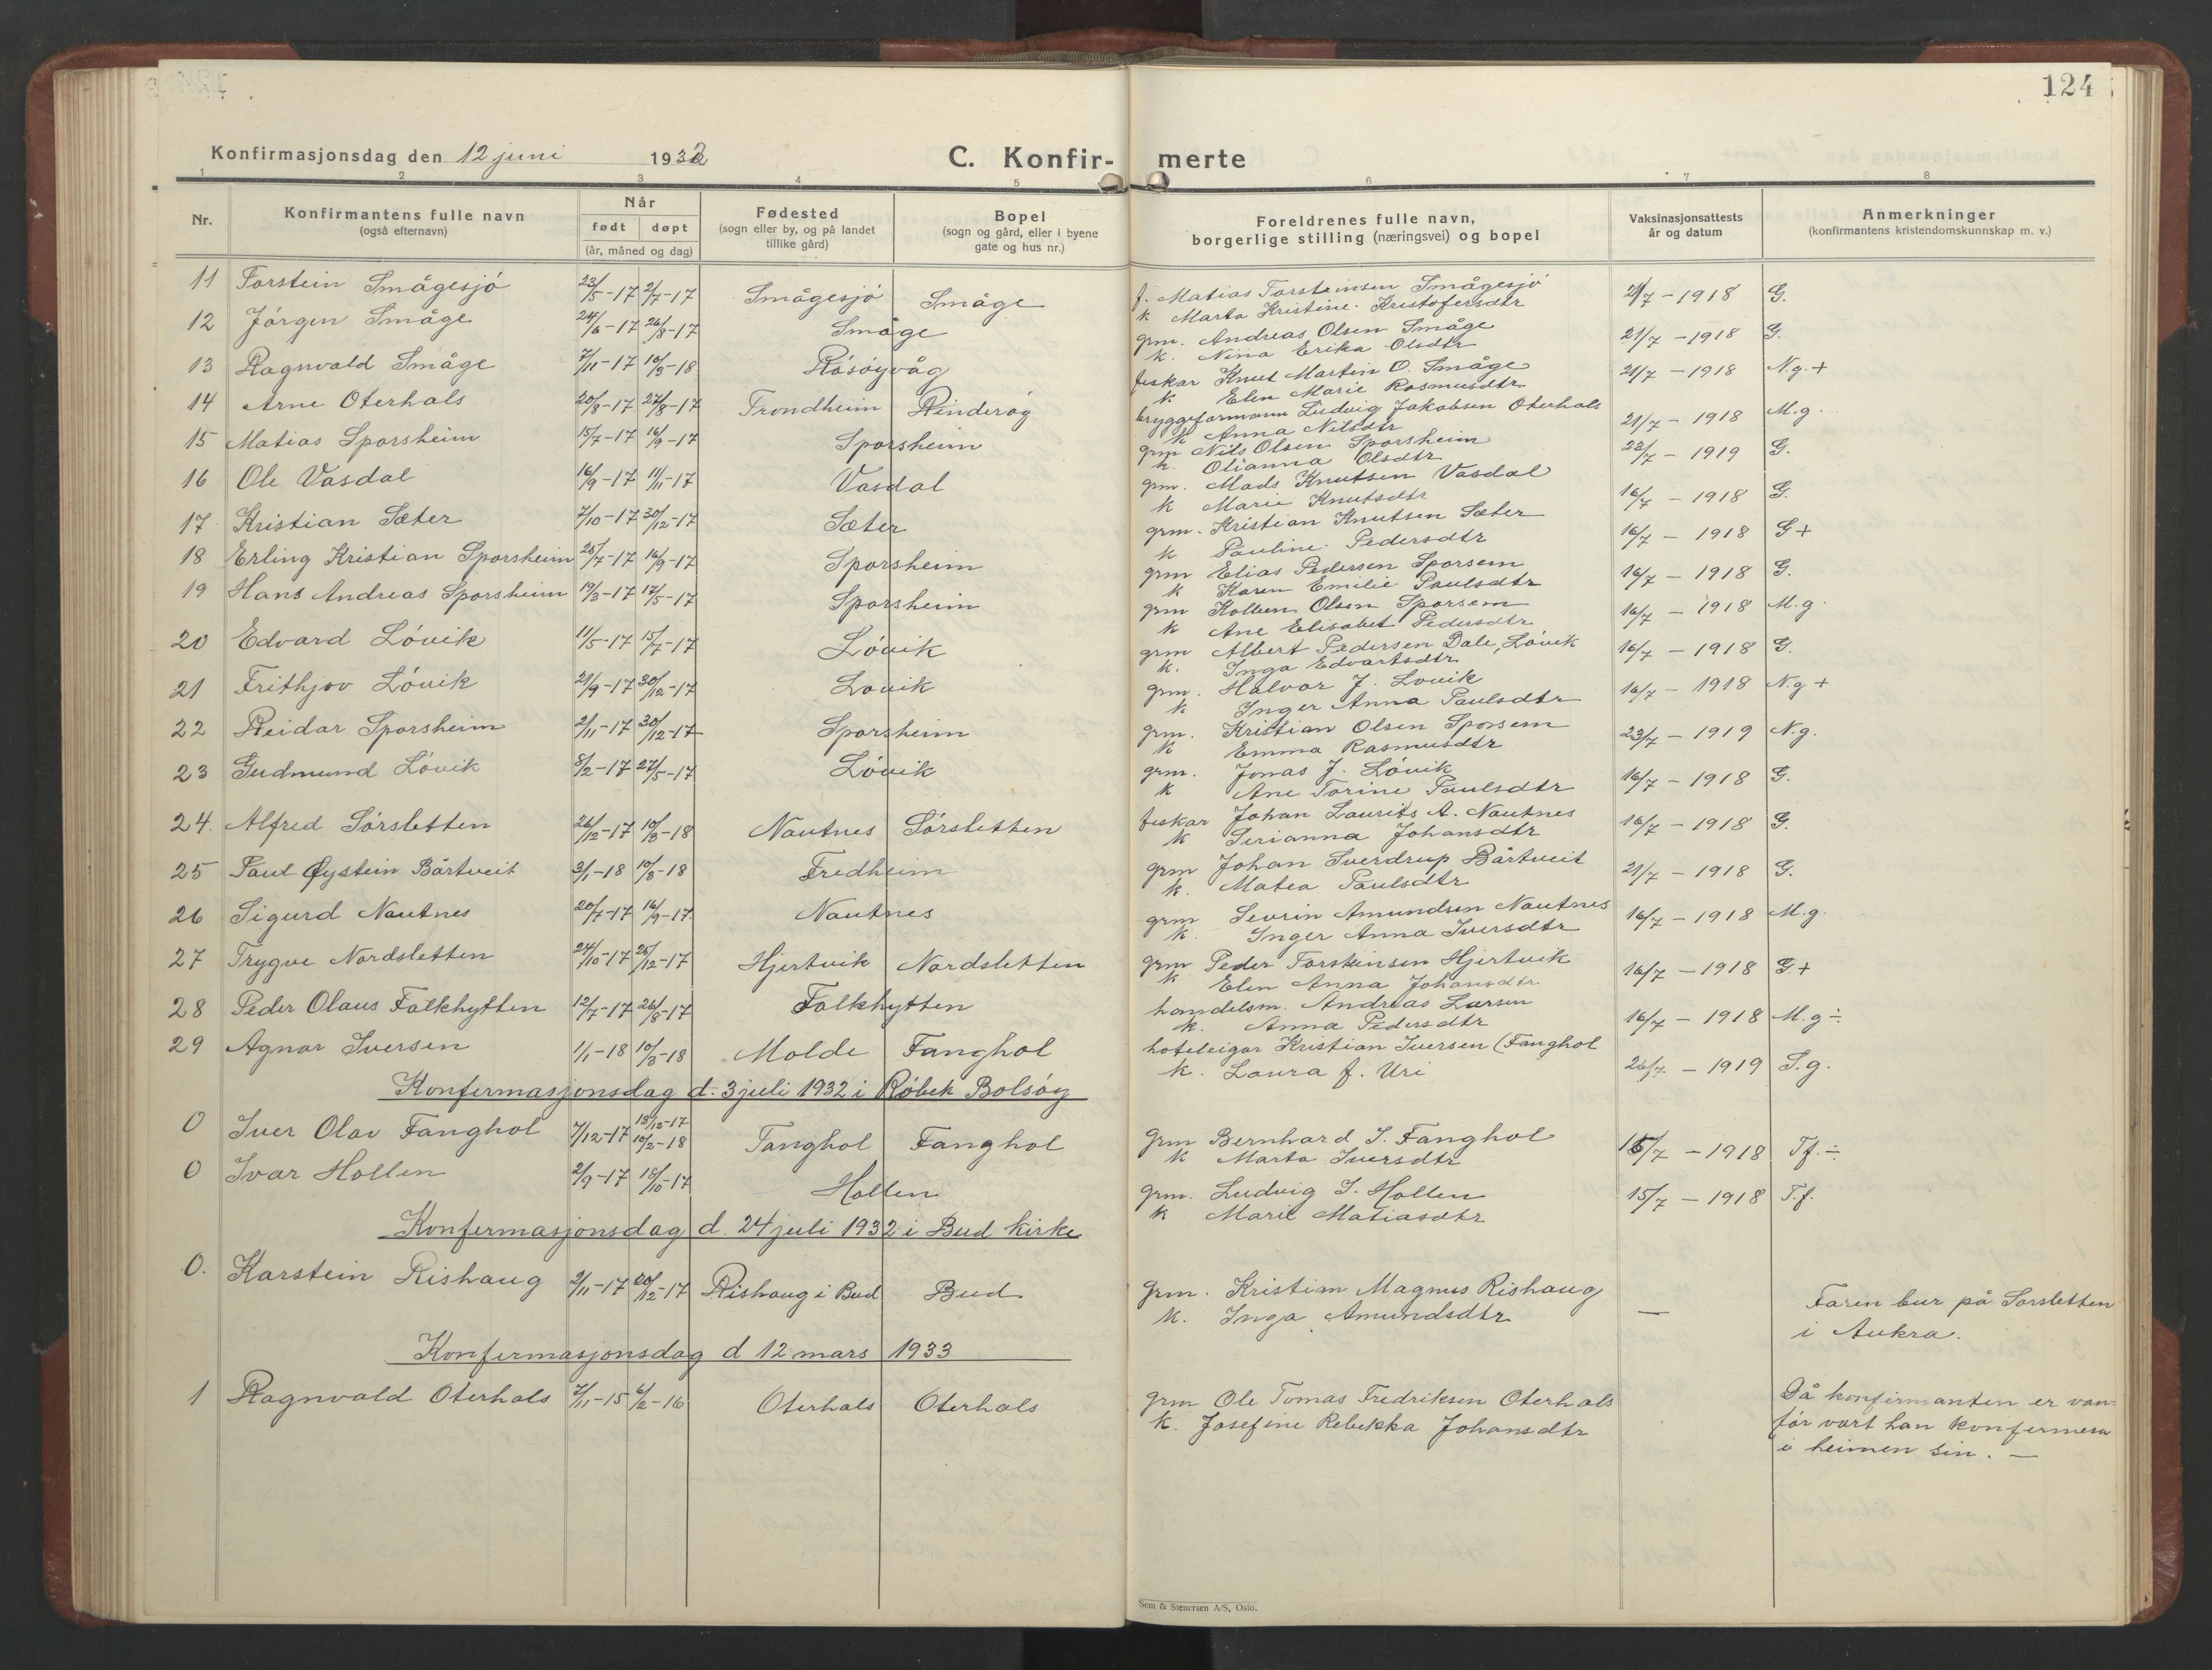 124
Konfirmasjonsdag den 12 juni 1932
C. Konfir- merte
1 2 3 4 5 6 7 8
Nr. Konfirmantens fulle navn (også efternavn) Når født døpt (år, måned og dag) Fødested (sogn eller by, og på landet tillike gård) Bopel (sogn og gård, eller i byene gate og hus nr.) Foreldrenes fulle navn, borgerlige stilling (næringsvei) og bopel Vaksinasjonsattests år og datum Anmerkninger (konfirmantens kristendomskunnskap m. v.)
11 Torstein Smågesjó 23/5-17 2/7-17 Smågesjó Småge f. Matias Torsteinsen Smågesjó 21/7-1918 G.
k Marta Kristine Kristofersdtr
12 Jórgen Småge 24/6-17 26/8-17 Småge grm. Andreas Olsen Småge 21/7-1918 G.
k. Nina Erika Olsdtr
13 Ragnvald Småge 7/11-17 10/3-18 Rósóyvåg fiskar Knut Martin O. Småge 21/7-1918 N.g.+
k Elen Marie Rasmusdtr
14 Arne Oterhals 20/3-17 27/8-17 Trondheim Rinderóg bryggeformann Ludvig Jakobsen Oterhals 21/7-1918 M.g.
k Anna Nilsdtr
15 Matias Sporsheim 15/7-17 16/9-17 Sporsheim grm Nils Olsen Sporsheim 23/7-1919 G.
k. Olianna Olsdtr
16 Ole Vasdal 16/9-17 11/11-17 Vasdal grm. Mads Knutsen Vasdal 16/7-1918 G.
k Marie Knutsdtr
17 Kristian Sæter 7/10-17 30/12-17 Sæter grm. Kristian Knutsen Sæter 16/7-1918 G+
k Pauline Pedersdtr
18 Erling Kristian Sporsheim 25/7-17 16/9-17 Sporsheim grm Elias Pedersen Sporsem 16/7-1918 G.
k Karen Emilie Paulsdtr
19 Hans Andreas Sporsheim 19/3-17 17/5-17 Sporsheim grm Kolben Olsen Sporsem 16/7-1918 M.g.
k Ane Elisabet Pedersdtr
20 Edvard Lóvik 11/5-17 15/7-17 Lóvik grm Albert Pedersen Dale, Lóvik 16/7-1918 G.
k. Inga Edvartsdtr
21 Frithjov Lóvik 21/9-17 30/12-17 Lovik grm. Halvor J. Lovik 16/7-1918 N.g+
k Inger Anna Paulsdtr
22 Reidar Sporsheim 2/11-17 30/12-17 Sporsheim grm. Kristian Olsen Sporsem 23/7-1919 N.g.
k Emma Rasmusdtr
23 Gudmund Lóvik 8/2-17 27/5-17 Lóvik grm. Jonas J. Lóvik 16/7-1918 G.
k Ane Torine Paulsdtr
24. Alfred Sórsletten 26/12-17 10/3-18 Nautnes Sórsletten fiskar Johan Laurits A. Nautnes 16/7-1918 G.
k Sirianna Johansdtr
25 Paul Øystein Bårtveit 3/1-18 10/3-18 Fredheim grm Johan Sverdrup Bårtveit 21/7-1918 G.
k. Matea Paulsdtr
26 Sigurd Nautnes 20/7-17 16/9-17. Nautnes grm Sevrin Amundsen Nautnes 16/7-1918 M.g.
k. Inger Anna Iversdtr
27 Trygve Nordsletten 24/10-17 26/12-17 Hjertvik Nordsletten grm Peder Torsteinsen Hjertvik 16/7-1918 G.+
k Elen Anna Johansdtr
28 Peder Olaus Falkhytten 12/7-17 26/8-17 Falkhytten handelsm. Andreas Larsen 16/7-1918 M.g÷
k. Anna Pedersdtr
29 Agnar Iversen 1/1-18 10/3-18 Molde Tanghol hoteleigar Kristian Iversen (Tanghol 26/7-1919 S.g.
k. Laura f. Uri
Konfermasjonsdag d. 3 juli 1932 i Róbek Bolsóy
0 Iver Olav Tanghol 7/12-17 13/12-17 10/2-18 Tanghol Tanghol grm Bernhard I. Tanghol 15/7-1918 Tf.÷
k Marta Iversdtr
0 Ivar Hollen 2/9-17 18/10-17 Hollen grm. Ludvig I. Hollen 15/7-1918 T.f.
k Marie Matiasdtr
Konfermasjonsdag d. 24 juli 1932 i Bud kirke
0. Karstein Rishaug 2/11-17 20/12-17 Rishaug i Bud Bud grm. Kristian Magnus Rishaug — Faren bur på Sorsletten
k. Inga Amundsdtr i Aukra.
Konfermasjonsdag d 12 mars 1933
1 Ragnvald Oterhals 7/11-15 6/2-16 Oterhals Oterhals grm Ole Tomas Fredriksen Oterhals Då konfirmanten er van-
k. Josefine Rebekka Johansdtr fór vart han konfermera
i heimen sin. —
Sem & Stenersen A/S, Oslo.